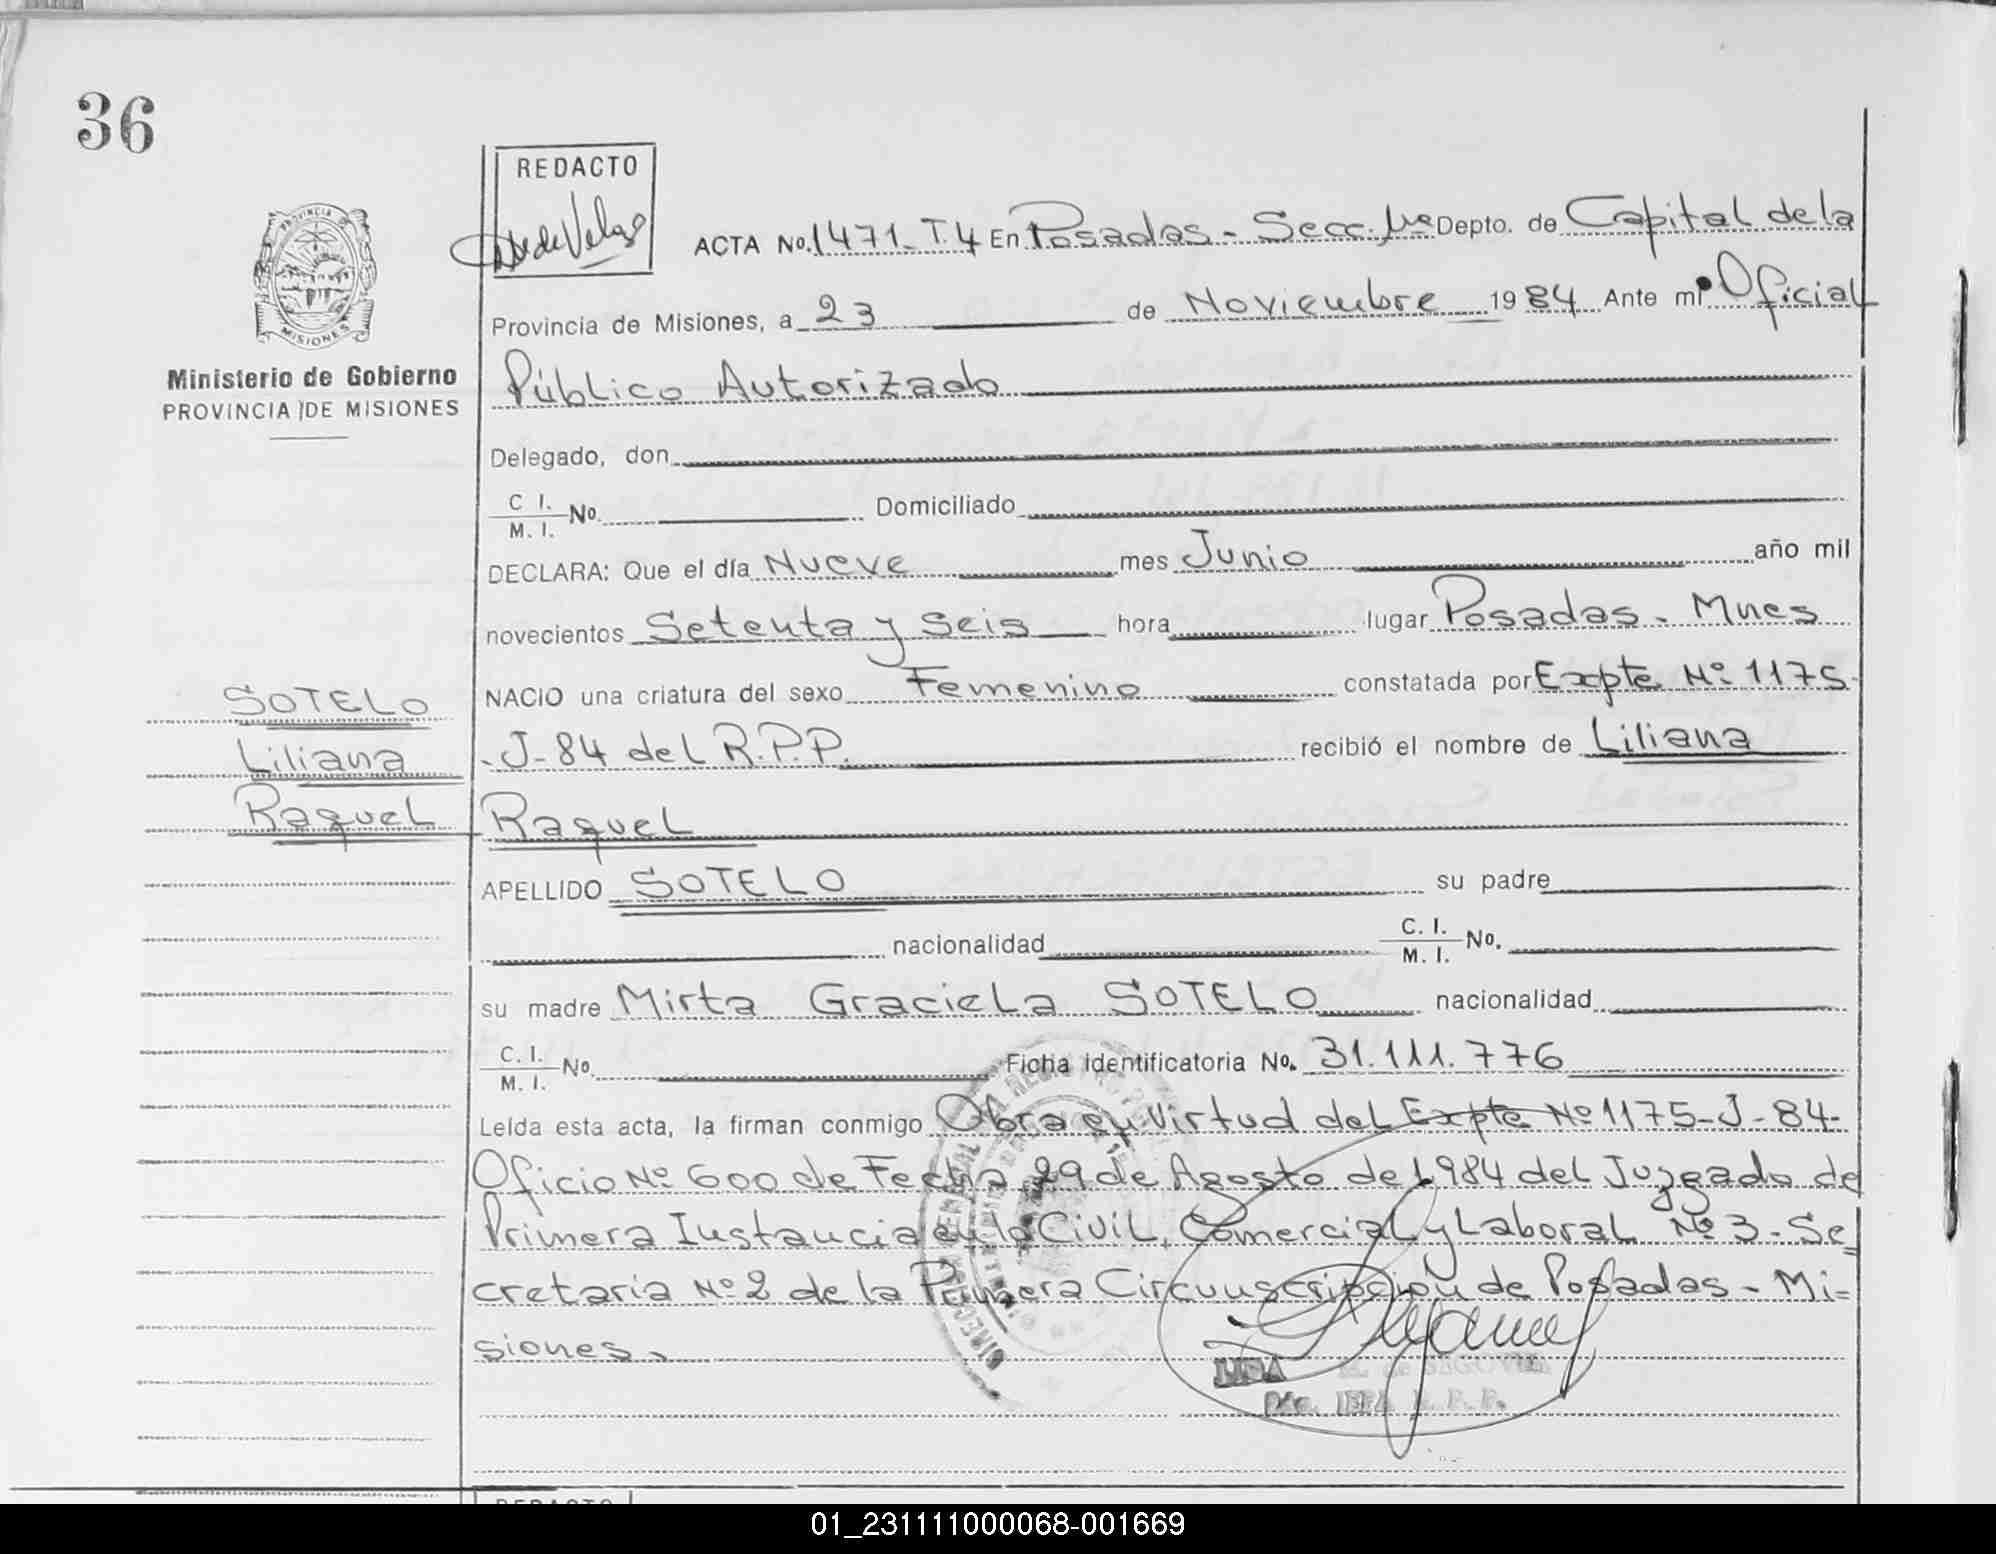 36
REDACTO
PROVINCIA DE
MISIONES
Ministerio de Gobierno
PROVINCIA DE MISIONES
ACTA No. 1471_T.4 En Posadas - Secc. 1ra Depto. de Capital de la
Provincia de Misiones, a 23 de Noviembre 1984 Ante mi Oficial
Público Autorizado
Delegado, don
C I.
M. I. No. Domiciliado
DECLARA: Que el día Nueve mes Junio año mil
novecientos Setenta y seis hora lugar Posadas - Mnes
NACIO una criatura del sexo Femenino constatada por Expte Nº 1175
- J-84 del R.P.P. recibió el nombre de Liliana
Raquel
SOTELO
Liliana
Raquel
APELLIDO SOTELO su padre
nacionalidad C. I.
M. I. No.
su madre Mirta Graciela SOTELO nacionalidad
C. I.
M. I. No. Ficha identificatoria No. 31.111.776
Leída esta acta, la firman conmigo Obra en Virtud del Expte Nº 1175-J-84-
Oficio Nº 600 de Fecha 29 de Agosto de 1984 del Juzgado de
Primera Instancia en lo Civil, Comercial y Laboral Nº 3 - Se
cretaria Nº 2 de la Primera Circunscripción de Posadas - Mi=
siones.
LIDA M. de SEGOVIA
R. P. P.
REDACTO
01_231111000068-001669